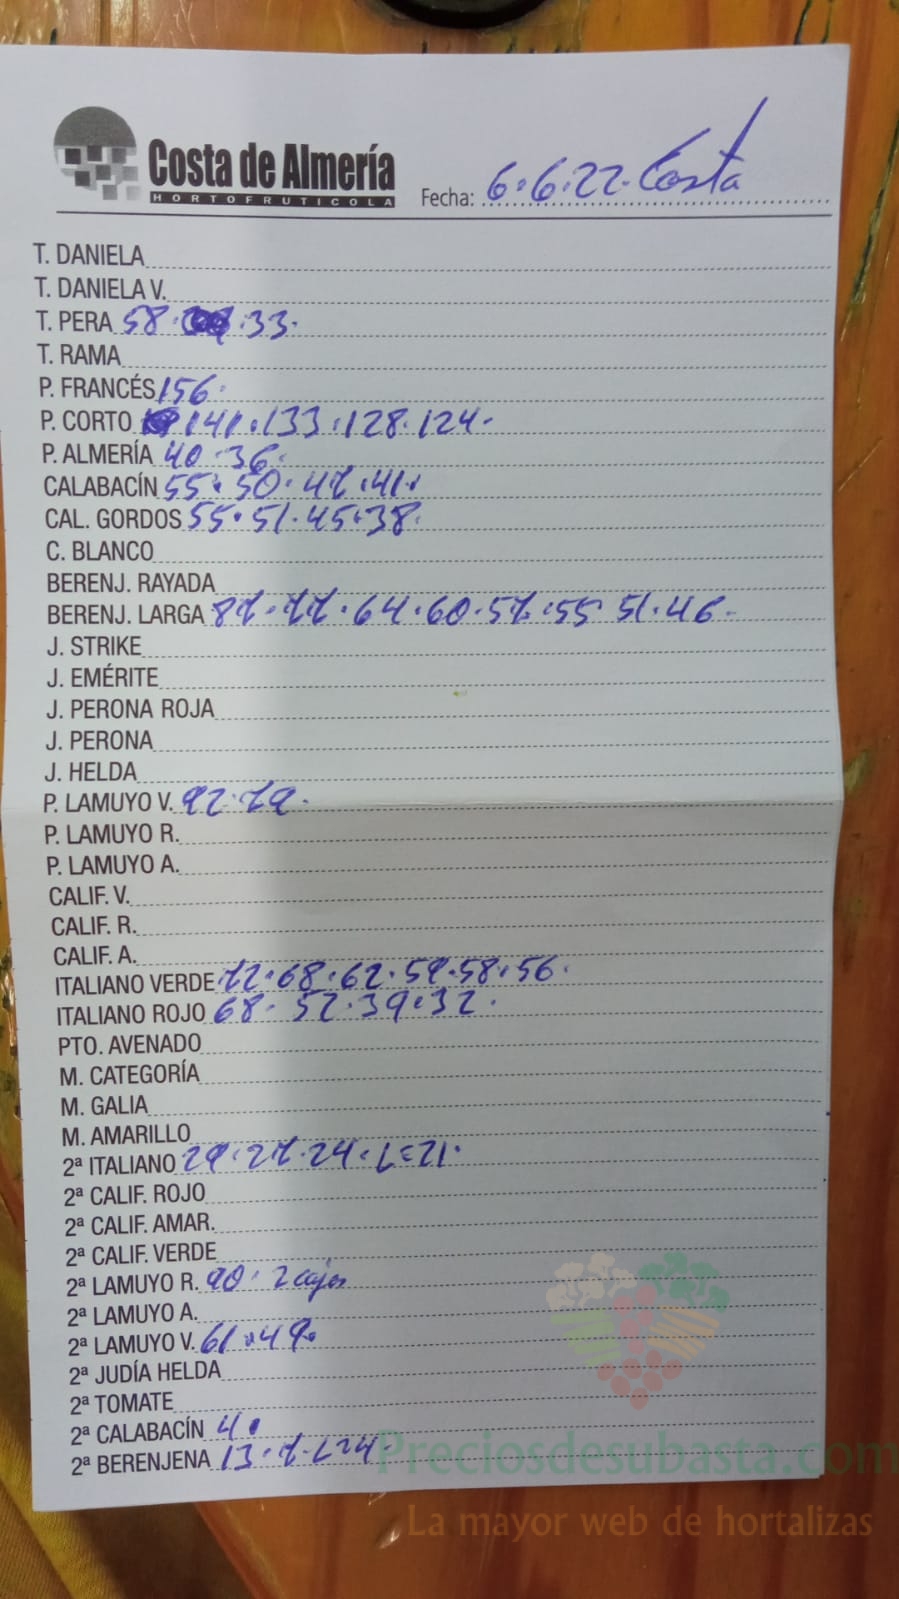 Costa de Almería
HORTOFRUTICOLA
Fecha: 6.6.22. Costa
T. DANIELA
T. DANIELA V.
T. PERA 58. 33.
T. RAMA
P. FRANCÉS 156.
P. CORTO 141. 133. 128. 124.
P. ALMERÍA 40. 36.
CALABACÍN 55. 50. 47. 41.
CAL. GORDOS 55. 51. 45. 38.
C. BLANCO
BERENJ. RAYADA
BERENJ. LARGA 87. 77. 64. 60. 57. 55 51. 46.
J. STRIKE
J. EMÉRITE
J. PERONA ROJA
J. PERONA
J. HELDA
P. LAMUYO V. 92. 79.
P. LAMUYO R.
P. LAMUYO A.
CALIF. V.
CALIF. R.
CALIF. A.
ITALIANO VERDE 72. 68. 62. 59. 58. 56.
ITALIANO ROJO 68. 52. 39. 32.
PTO. AVENADO
M. CATEGORÍA
M. GALIA
M. AMARILLO
2ª ITALIANO 29. 27. 24. 21.
2ª CALIF. ROJO
2ª CALIF. AMAR.
2ª CALIF. VERDE
2ª LAMUYO R. 90. 2 cajas
2ª LAMUYO A.
2ª LAMUYO V. 61. 49.
2ª JUDÍA HELDA
2ª TOMATE
2ª CALABACÍN 4.
2ª BERENJENA 13. 7.
Preciosdesubasta.com
La mayor web de hortalizas